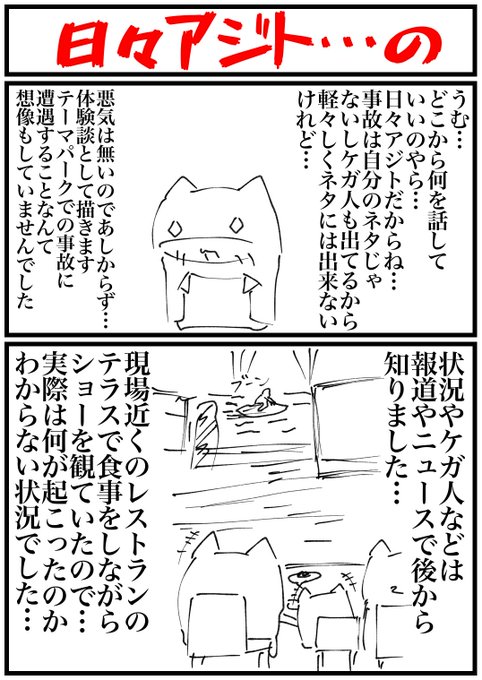 日々アジト…の
うむ…
どこから何を話して
いいのやら…
日々アジトだからね…
事故は自分のネタじゃ
ないしケガ人も出てるから
軽々しくネタには出来ない
けれど…
悪気は無いのであしからず…
体験談として描きます
テーマパークでの事故に
遭遇することなんて
想像もしていませんでした
状況やケガ人などは
報道やニュースで後から
知りました…
ブーン
現場近くのレストランの
テラスで食事をしながら
ショーを観ていたので…
実際は何が起こったのか
わからない状況でした…